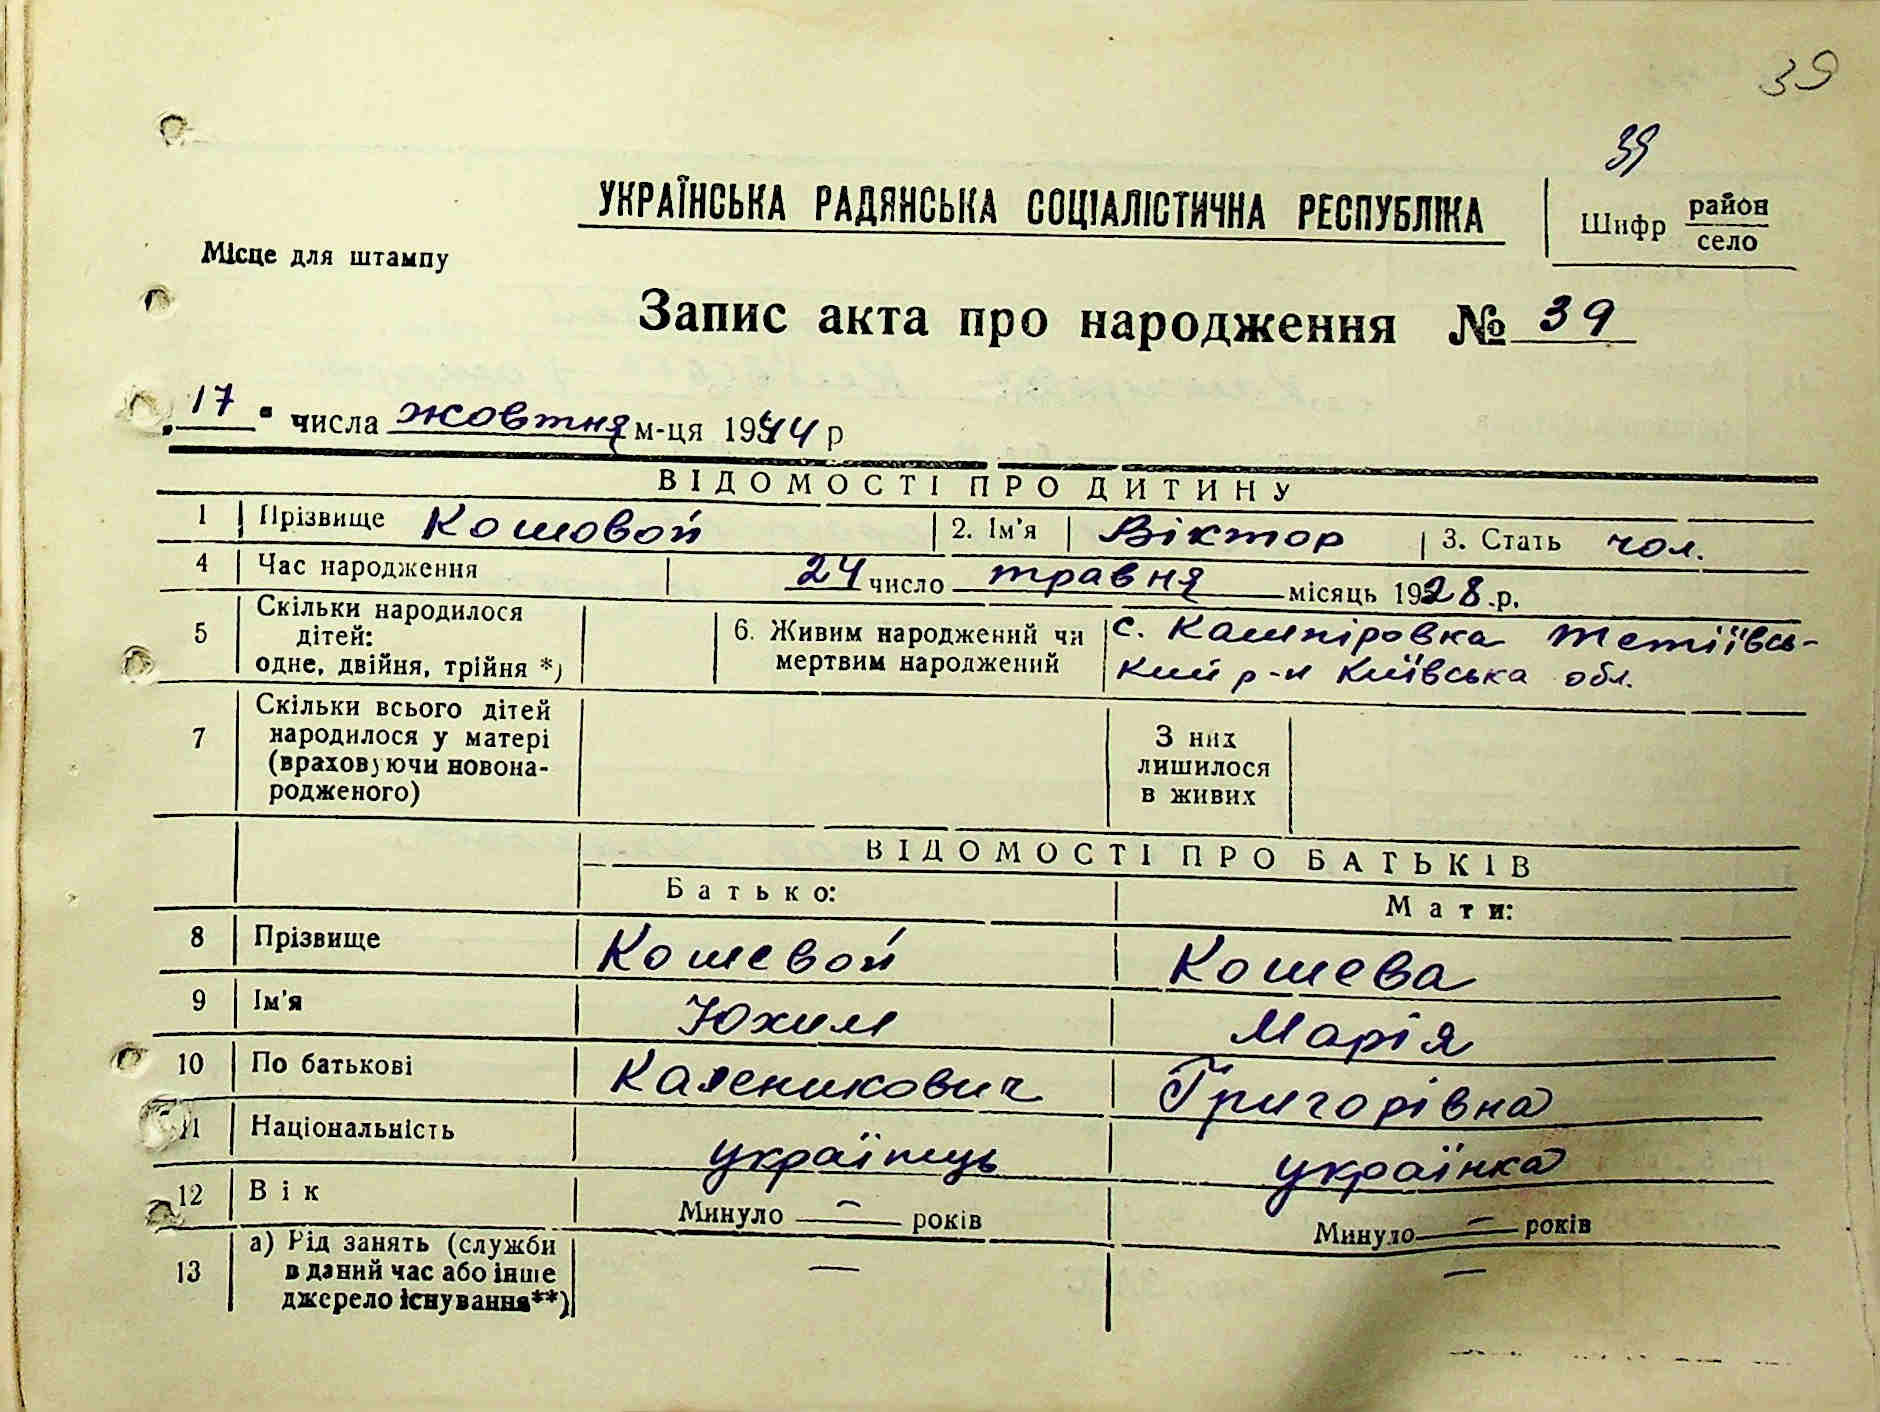 39
39
УКРАЇНСЬКА РАДЯНСЬКА СОЦІАЛІСТИЧНА РЕСПУБЛІКА
Шифр район
село
Місце для штампу
Запис акта про народження № 39
„17" числа жовтня м-ця 1944 р
ВІДОМОСТІ ПРО ДИТИНУ
1 Прізвище Кошовой 2. Ім'я Віктор 3. Стать чол.
4 Час народження 24 число травня місяць 1928.р.
5 Скільки народилося
дітей:
одне, двійня, трійня *)
6. Живим народжений чи
мертвим народжений
с. Кашпіровка Тетіївсь-
кий р-н Київська обл.
7 Скільки всього дітей
народилося у матері
(враховуючи новона-
родженого)
З них
лишилося
в живих
ВІДОМОСТІ ПРО БАТЬКІВ
Батько: Мати:
8 Прізвище Кошевой Кошева
9 Ім'я Юхим Марія
10 По батькові Каленикович Григорівна
11 Національність українець українка
12 Вік Минуло — років Минуло — років
13 а) Рід занять (служби
в даний час або інше
джерело існування**)
— —